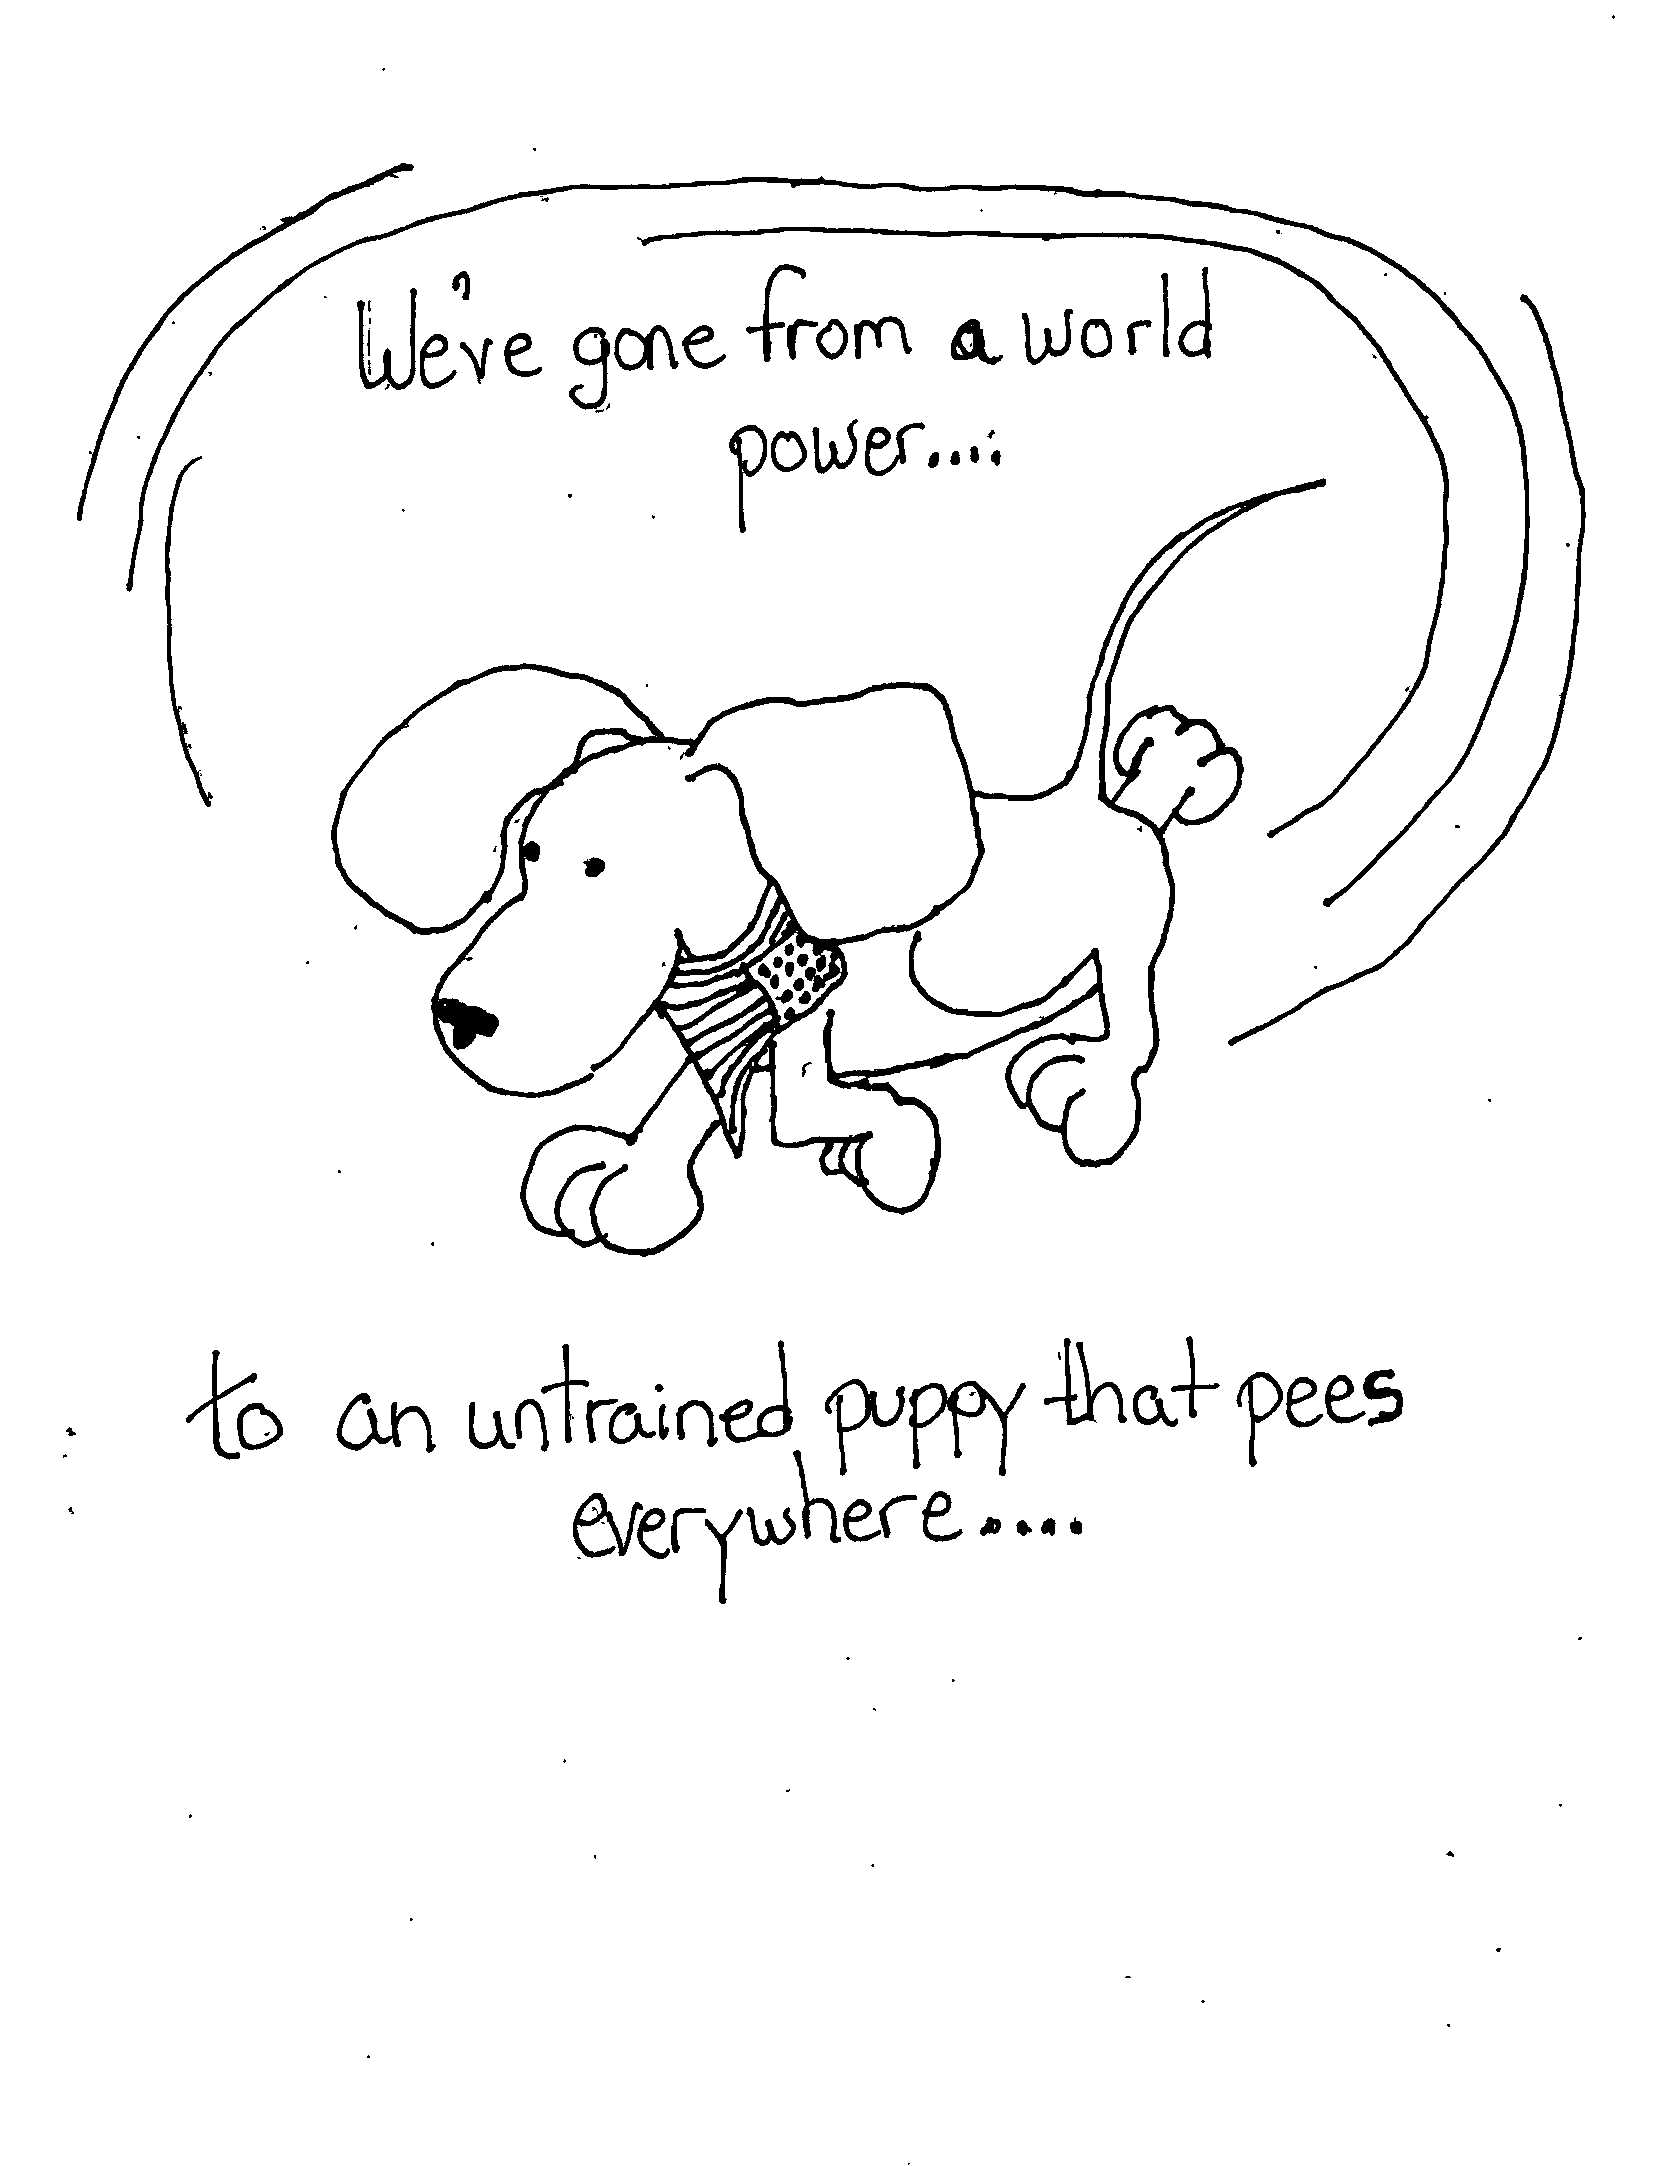 We've gone from a world
power....
to an untrained puppy that pees
everywhere....